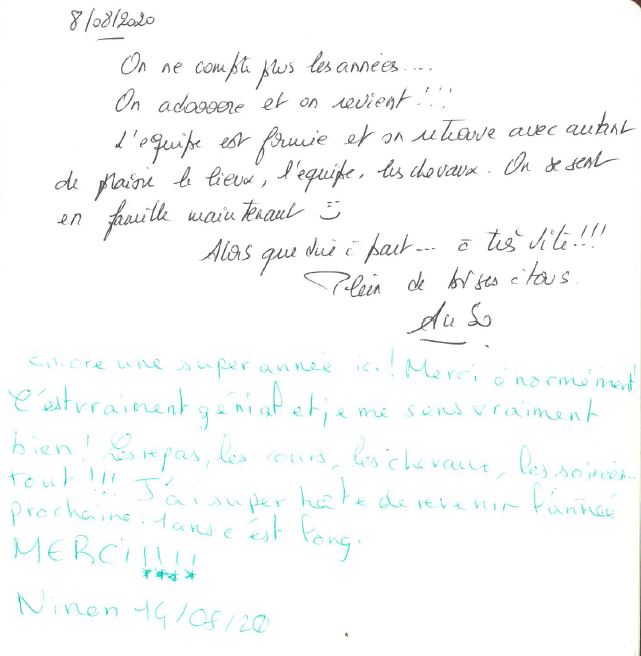 8/08/2020
On ne compte plus les années....
On adooore et on revient!!!
L'equipe est formie et on retrouve avec autant
de plaisir le lieux, l'equipe, les chevaux. On se sent
en famille maintenant
Alors que dire à part... à très vite!!!
Plein de bises à tous.
encore une super année ici! Merci énormément
C'est vraiment génial et je me sens vraiment
bien! Les repas, les cours, les chevaux, les soirées..
tout!!! J'ai super hâte de revenir l'année
prochaine. 1 ans c'est long.
MERCI!!!!!
Ninon 14/08/20